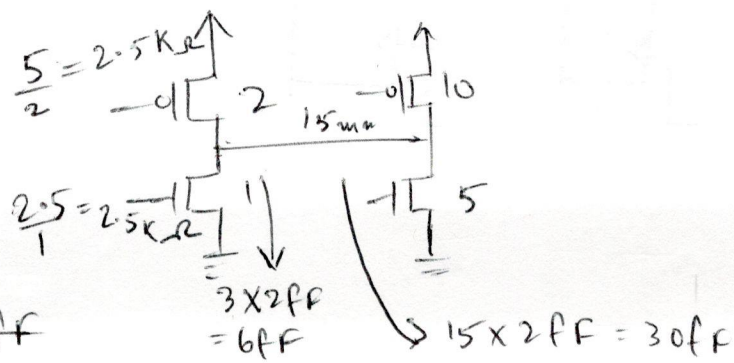 5/2 = 2.5KΩ
2
10
15mm
2.5/1 = 2.5KΩ
1
5
3X2fF
= 6fF
15X2fF = 30fF